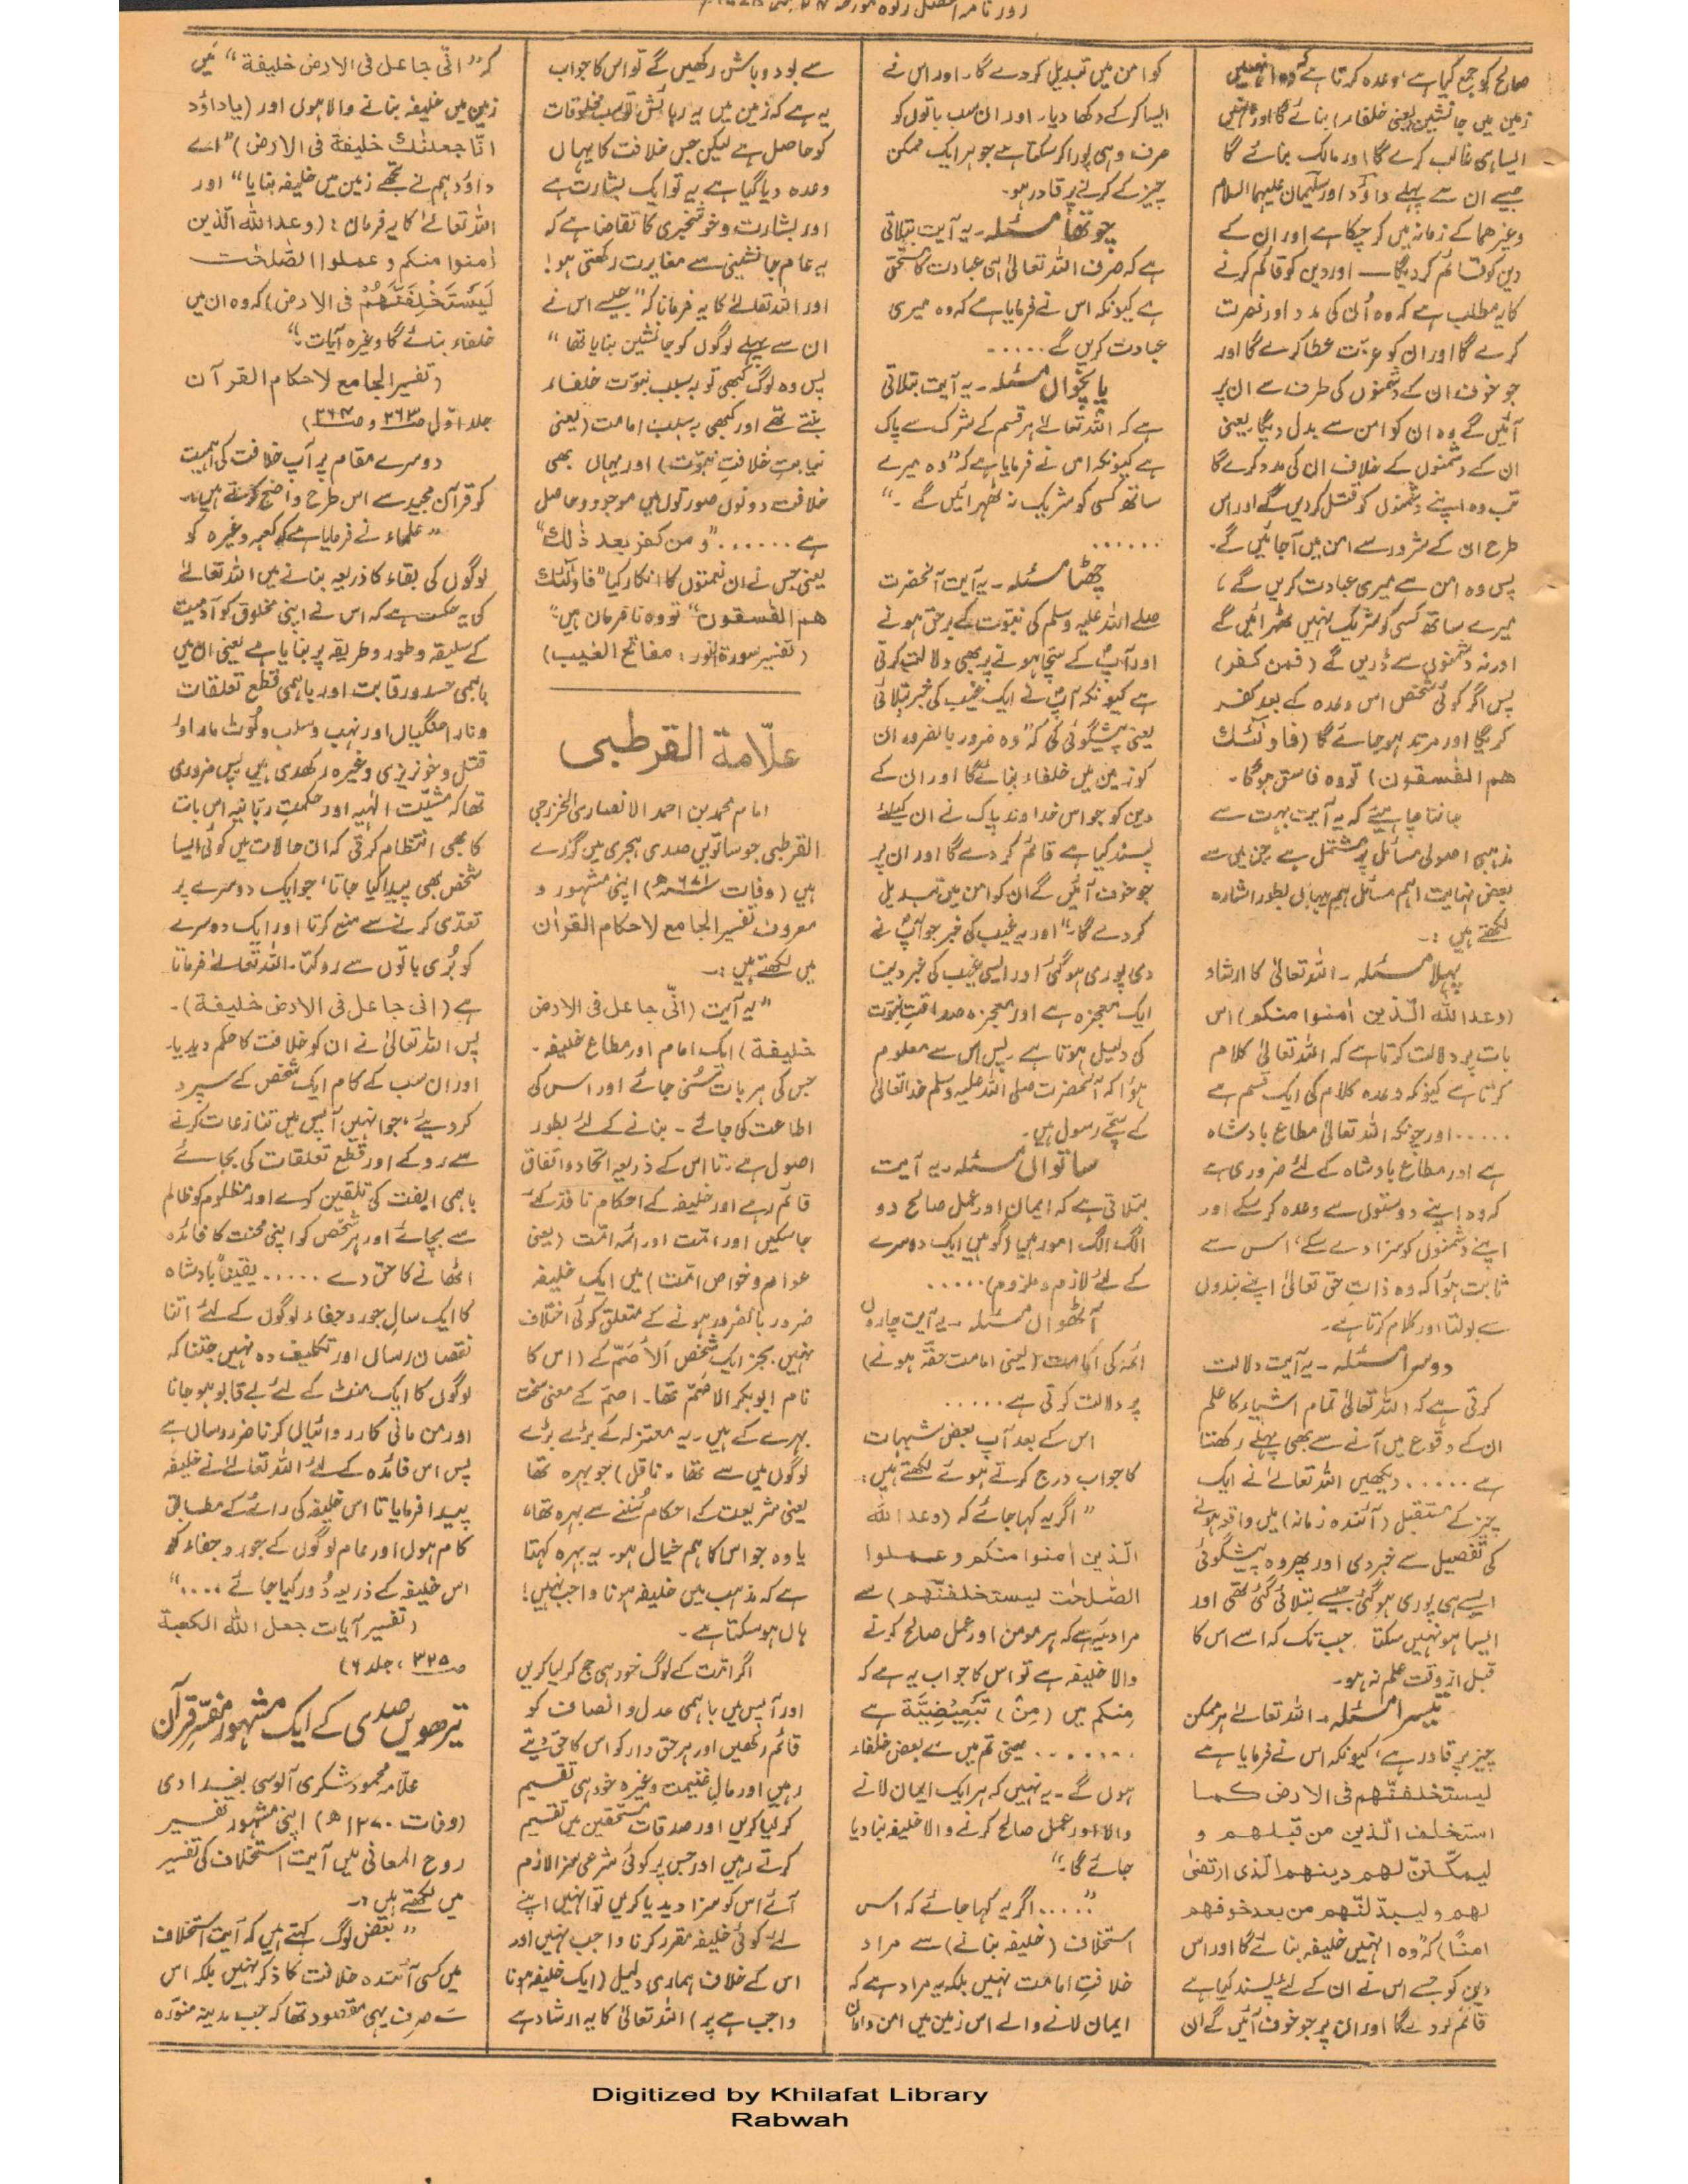 صالح کو جمع کیا ہے، وعدہ کرتا ہے کہ وہ انہیں
زمین میں جانشین (یعنی خلفاء) بنائے گا اور انہیں
ایسا ہی غالب کرے گا اور مالک بنائے گا
جیسے ان سے پہلے داؤد اور سلیمان علیہما السلام
وغیرھما کے زمانہ میں کر چکا ہے اور ان کے
دین کو قائم کر دیگا — اور دین کو قائم کرنے
کا یہ مطلب ہے کہ وہ اُن کی مدد اور نصرت
کرے گا اور ان کو عزّت عطا کرے گا اور
جو خوف ان کے دشمنوں کی طرف سے ان پر
آئیں گے وہ ان کو امن سے بدل دیگا، یعنی
ان کے دشمنوں کے خلاف ان کی مدد کرے گا
تب وہ اپنے دشمنوں کو قتل کر دیں گے اور اس
طرح ان کے شرور سے امن میں آجائیں گے۔
پس وہ امن سے میری عبادت کریں گے،
میرے ساتھ کسی کو شریک نہیں ٹھہرائیں گے
اور نہ دشمنوں سے ڈریں گے (فمن کفر)
پس اگر کوئی شخص اس وعدہ کے بعد کفر
کریگا اور مرتد ہو جائے گا (فاولٰئک
ھم الفٰسقون) تو وہ فاسق ہوگا۔
جاننا چاہیئے کہ یہ آیت بہت سے
مذہبی اصولی مسائل پر مشتمل ہے جن میں سے
بعض نہایت اہم مسائل ہم یہاں بطور اشارہ
لکھتے ہیں :۔
پہلا مسئلہ۔ اللہ تعالیٰ کا ارشاد
(وعد اللہ الّذین اٰمنوا منکم) اس
بات پر دلالت کرتا ہے کہ اللہ تعالیٰ کلام
کرتا ہے کیونکہ وعدہ کلام کی ایک قسم ہے
..... اور چونکہ اللہ تعالیٰ مطاع بادشاہ
ہے اور مطاع بادشاہ کے لئے ضروری ہے
کہ وہ اپنے دوستوں سے وعدہ کر سکے اور
اپنے دشمنوں کو سزا دے سکے، اس سے
ثابت ہؤا کہ وہ ذاتِ حق تعالیٰ اپنے بندوں
سے بولتا اور کلام کرتا ہے۔
دوسرا مسئلہ۔ یہ آیت دلالت
کرتی ہے کہ اللہ تعالیٰ تمام اشیاء کا علم
ان کے وقوع میں آنے سے بھی پہلے رکھتا
ہے ..... دیکھیں اللہ تعالےٰ نے ایک
چیز کے مستقبل (آئندہ زمانہ) میں واقعہ ہونے
کی تفصیل سے خبر دی اور پھر وہ پیشگوئی
ایسے ہی پوری ہو گئی جیسے بتلائی گئی تھی اور
ایسا ہو نہیں سکتا جب تک کہ اسے اس کا
قبل از وقت علم نہ ہو۔
تیسرا مسئلہ۔ اللہ تعالےٰ ہر ممکن
چیز پر قادر ہے، کیونکہ اس نے فرمایا ہے
لیستخلفنّھم فی الارض کما
استخلف الّذین من قبلھم و
لیمکّننّ لھم دینھم الّذی ارتضیٰ
لھم ولیبدّلنّھم من بعد خوفھم
امنًا) کہ "وہ انہیں خلیفہ بنائے گا اور اس
دین کو جسے اس نے ان کے لئے پسند کیا ہے
قائم کر دے گا اور ان پر جو خوف آئیں گے ان
کو امن میں تبدیل کر دے گا، اور اس نے
ایسا کر کے دکھا دیا۔ اور ان سب باتوں کو
صرف وہی پورا کر سکتا ہے جو ہر ایک ممکن
چیز کے کرنے پر قادر ہو۔
چوتھا مسئلہ۔ یہ آیت بتلاتی
ہے کہ صرف اللہ تعالیٰ ہی عبادت کا مستحق
ہے کیونکہ اس نے فرمایا ہے کہ وہ میری
عبادت کریں گے .....
پانچواں مسئلہ۔ یہ آیت بتلاتی
ہے کہ اللہ تعالےٰ ہر قسم کے شرک سے پاک
ہے کیونکہ اس نے فرمایا ہے کہ "وہ میرے
ساتھ کسی کو شریک نہ ٹھہرائیں گے۔"
......
چھٹا مسئلہ۔ یہ آیت آنحضرت
صلے اللہ علیہ وسلم کی نبوت کے برحق ہونے
اور آپؐ کے سچا ہونے پر بھی دلالت کرتی
ہے کیونکہ آپؐ نے ایک غیب کی خبر بتلائی
یعنی پیشگوئی کی کہ "وہ ضرور بالضرور ان
کو زمین میں خلفاء بنائے گا اور ان کے
دین کو جو اس خداوند پاک نے ان کیلئے
پسند کیا ہے قائم کر دے گا اور ان پر
جو خوف آئیں گے ان کو امن میں تبدیل
کر دے گا۔" اور یہ غیب کی خبر جو آپؐ نے
دی پوری ہو گئی اور ایسی غیب کی خبر دینا
ایک معجزہ ہے اور معجزہ صداقتِ نبوّت
کی دلیل ہوتا ہے۔ پس اس سے معلوم
ہؤا کہ آنحضرت صلی اللہ علیہ وسلم خدا تعالیٰ
کے سچّے رسول ہیں۔
ساتواں مسئلہ۔ یہ آیت
بتلاتی ہے کہ ایمان اور عمل صالح دو
الگ الگ امور ہیں (گو ہیں ایک دوسرے
کے لئے لازم و ملزوم) .....
آٹھواں مسئلہ۔ یہ آیت چاروں
ائمہ کی امامت (یعنی امامت حقّہ ہونے)
پر دلالت کرتی ہے .....
اس کے بعد آپ بعض شبہات
کا جواب درج کرتے ہوئے لکھتے ہیں:
"اگر یہ کہا جائے کہ (وعد اللہ
الّذین اٰمنوا منکم وعملوا
الصّٰلحٰت لیستخلفنّھم) سے
مراد یہ ہے کہ ہر مومن اور عمل صالح کرنے
والا خلیفہ ہے تو اس کا جواب یہ ہے کہ
مِنکم میں (مِنْ) تَبْعِیْضِیَّة ہے
....... یعنی تم میں سے بعض خلفاء
ہوں گے۔ یہ نہیں کہ ہر ایک ایمان لانے
والا اور عمل صالح کرنے والا خلیفہ بنا دیا
جائے گا۔"
"..... اگر یہ کہا جائے کہ اس
استخلاف (خلیفہ بنانے) سے مراد
خلافتِ امامت نہیں بلکہ یہ مراد ہے کہ
ایمان لانے والے اس زمین میں امن و امان
سے بود و باش رکھیں گے تو اس کا جواب
یہ ہے کہ زمین میں یہ رہائش تو سب مخلوقات
کو حاصل ہے لیکن جس خلافت کا یہاں
وعدہ دیا گیا ہے یہ تو ایک بشارت ہے
اور بشارت و خوشخبری کا تقاضا ہے کہ
یہ عام جانشینی سے مغایرت رکھتی ہو!
اور اللہ تعالےٰ کا یہ فرمانا کہ "جیسے اس نے
ان سے پہلے لوگوں کو جانشین بنایا تھا"
پس وہ لوگ کبھی تو بہ سبب نبوّت خلفاء
بنتے تھے اور کبھی بہ سبب امامت (یعنی
نیابتِ خلافتِ نبوّت) اور یہاں بھی
خلافت دونوں صورتوں میں موجود و حاصل
ہے ...... "و من کفر بعد ذٰلک"
یعنی جس نے ان نعمتوں کا انکار کیا "فاولٰئک
ھم الفٰسقون" تو وہ نافرمان ہیں"
(تفسیر سورۃ النّور: مفاتح الغیب)
علّامة القرطبی
امام محمد بن احمد الانصاری الخزرجی
القرطبی جو ساتویں صدی ہجری میں گزرے
ہیں (وفات ۶۷۱ھ) اپنی مشہور و
معروف تفسیر الجامع لاحکام القراٰن
میں لکھتے ہیں :۔
"یہ آیت (انّی جاعل فی الارض
خلیفة) ایک امام اور مطاع خلیفہ۔
جس کی ہر بات سُنی جائے اور اس کی
اطاعت کی جائے۔ بنانے کے لئے بطور
اصول ہے۔ تا اس کے ذریعہ اتحاد و اتفاق
قائم رہے اور خلیفہ کے احکام نافذ کئے
جا سکیں اور امّت اور ائمہ امّت (یعنی
عوام و خواص امّت) میں ایک خلیفہ
ضرور بالضرور ہونے کے متعلق کوئی اختلاف
نہیں۔ بجز ایک شخص اَلاَصَمّ کے (اس کا
نام ابو بکر الاصَمّ تھا۔ اصمّ کے معنی سخت
بہرے کے ہیں۔ یہ معتزلہ کے بڑے بڑے
لوگوں میں سے تھا۔ ناقل) جو بہرہ تھا
یعنی شریعت کے احکام سُننے سے بہرہ تھا،
یا وہ جو اس کا ہم خیال ہو۔ یہ بہرہ کہتا
ہے کہ مذہب میں خلیفہ ہونا واجب نہیں!
ہاں ہو سکتا ہے۔
اگر امّت کے لوگ خود ہی حج کر لیا کریں
اور آپس میں باہمی عدل و انصاف کو
قائم رکھیں اور ہر حق دار کو اس کا حق دیتے
رہیں اور مالِ غنیمت وغیرہ خود ہی تقسیم
کر لیا کریں اور صدقات مستحقین میں تقسیم
کرتے رہیں اور جس پر کوئی شرعی سزا لازم
آئے اس کو سزا دیدیا کریں تو انہیں اپنے
لئے کوئی خلیفہ مقرر کرنا واجب نہیں اور
اس کے خلاف ہماری دلیل (ایک خلیفہ ہونا
واجب ہے پر) اللہ تعالیٰ کا یہ ارشاد ہے
کہ "انّی جاعل فی الارض خلیفة" میں
زمین میں خلیفہ بنانے والا ہوں اور (یاداؤد
انّا جعلنٰک خلیفة فی الارض) "اے
داؤد ہم نے تجھے زمین میں خلیفہ بنایا" اور
اللہ تعالےٰ کا یہ فرمان: (وعد اللہ الّذین
اٰمنوا منکم و عملوا الصّٰلحٰت
لَیَسْتَخْلِفَنَّھُمْ فی الارض) کہ وہ ان میں
خلفاء بنائے گا وغیرہ آیات۔"
(تفسیر الجامع لاحکام القرآن
جلد اوّل صـ۲۶۳ و صـ۲۶۴)
دوسرے مقام پر آپ خلافت کی اہمیت
کو قرآن مجید سے اس طرح واضح کرتے ہیں:۔
"علماء نے فرمایا ہے کہ کعبہ وغیرہ کو
لوگوں کی بقاء کا ذریعہ بنانے میں اللہ تعالےٰ
کی یہ حکمت ہے کہ اس نے اپنی مخلوق کو آدمیت
کے سلیقہ و طور و طریقہ پر بنایا ہے یعنی ان میں
باہمی حسد و رقابت اور باہمی قطع تعلقات
و ناراضگیاں اور نہب و سلب و لُوٹ مار اور
قتل و خونریزی وغیرہ رکھدی ہیں پس ضروری
تھا کہ مشیّت الٰہیہ اور حکمتِ ربّانیہ اس بات
کا بھی انتظام کرتی کہ ان حالات میں کوئی ایسا
شخص بھی پیدا کیا جاتا، جو ایک دوسرے پر
تعدّی کرنے سے منع کرتا اور ایک دوسرے
کو بُری باتوں سے روکتا۔ اللہ تعالےٰ فرماتا
ہے (انی جاعل فی الارض خلیفة)۔
پس اللہ تعالیٰ نے ان کو خلافت کا حکم دیدیا۔
اور ان سب کے کام ایک شخص کے سپرد
کر دیئے، جو انہیں آپس میں تنازعات کرنے
سے روکے اور قطع تعلقات کی بجائے
باہمی الفت کی تلقین کرے اور مظلوم کو ظالم
سے بچائے اور ہر شخص کو اپنی محنت کا فائدہ
اٹھانے کا حق دے ..... یقیناً بادشاہ
کا ایک سال جور و جفاء لوگوں کے لئے اتنا
نقصان رساں اور تکلیف دہ نہیں جتنا کہ
لوگوں کا ایک منٹ کے لئے بے قابو ہو جانا
اور من مانی کارروائیاں کرنا ضرر رساں ہے
پس اس فائدہ کے لئے اللہ تعالےٰ نے خلیفہ
پیدا فرمایا تا اس خلیفہ کی رائے کے مطابق
کام ہوں اور عام لوگوں کے جور و جفاء کو
اس خلیفہ کے ذریعہ دُور کیا جائے ...."
(تفسیر آیات جعل اللہ الکعبة
صـ۳۲۵، جلد ۶)
تیرھویں صدی کے ایک مشہور مفسّرِ قرآن
علّامہ محمود شکری آلوسی بغدادی
(وفات ۱۲۷۰ھ) اپنی مشہور تفسیر
روح المعانی میں آیت استخلاف کی تفسیر
میں لکھتے ہیں :۔
"بعض لوگ کہتے ہیں کہ آیت استخلاف
میں کسی آئندہ خلافت کا ذکر نہیں بلکہ اس
سے صرف یہی مقصود تھا کہ جب مدینہ منوّرہ
Digitized by Khilafat Library
Rabwah